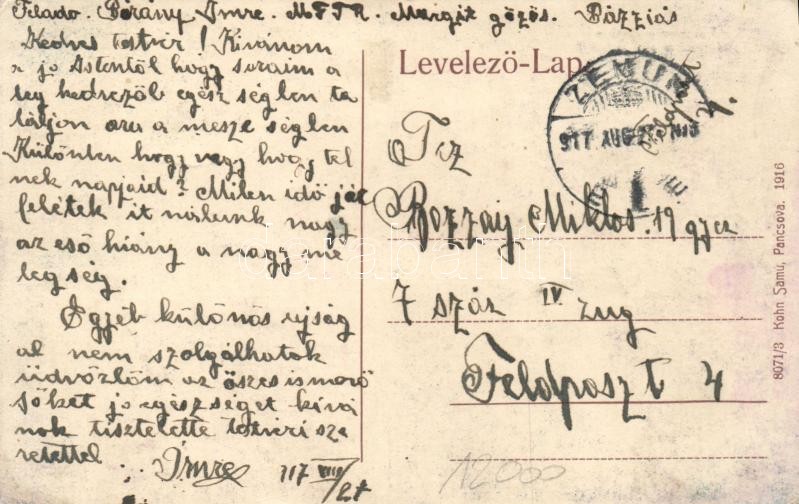 Felado Bárány Imre. MFTR. Margit gőzös. Bázziás
Kedves testvér! Kivánom
a jo Istentöl hogy soraim a
leg kedvezöb egész ségben ta
láljon ara a mesze ségben
Különben hogy vagy hogy tel
nek napjaid? Milen idö jár
felétek it nálunk nagy
az esö hiány a nagy me
legség.
Egyéb különös ujság
al nem szolgálhatok
üdvözlöm az öszes ismerö
söket jo egészséget kivá
nok tisztelette testveri sze
retettel
Imre
117 VIII/27
Levelezö-Lap
ZEMUN
917 AUG 27
Tcz
Bozzay Miklos. 19 gyez
7 száz IV zug
Feldposzt 4
12000
8071/3 Kohn Samu, Pancsova. 1916
darabanth